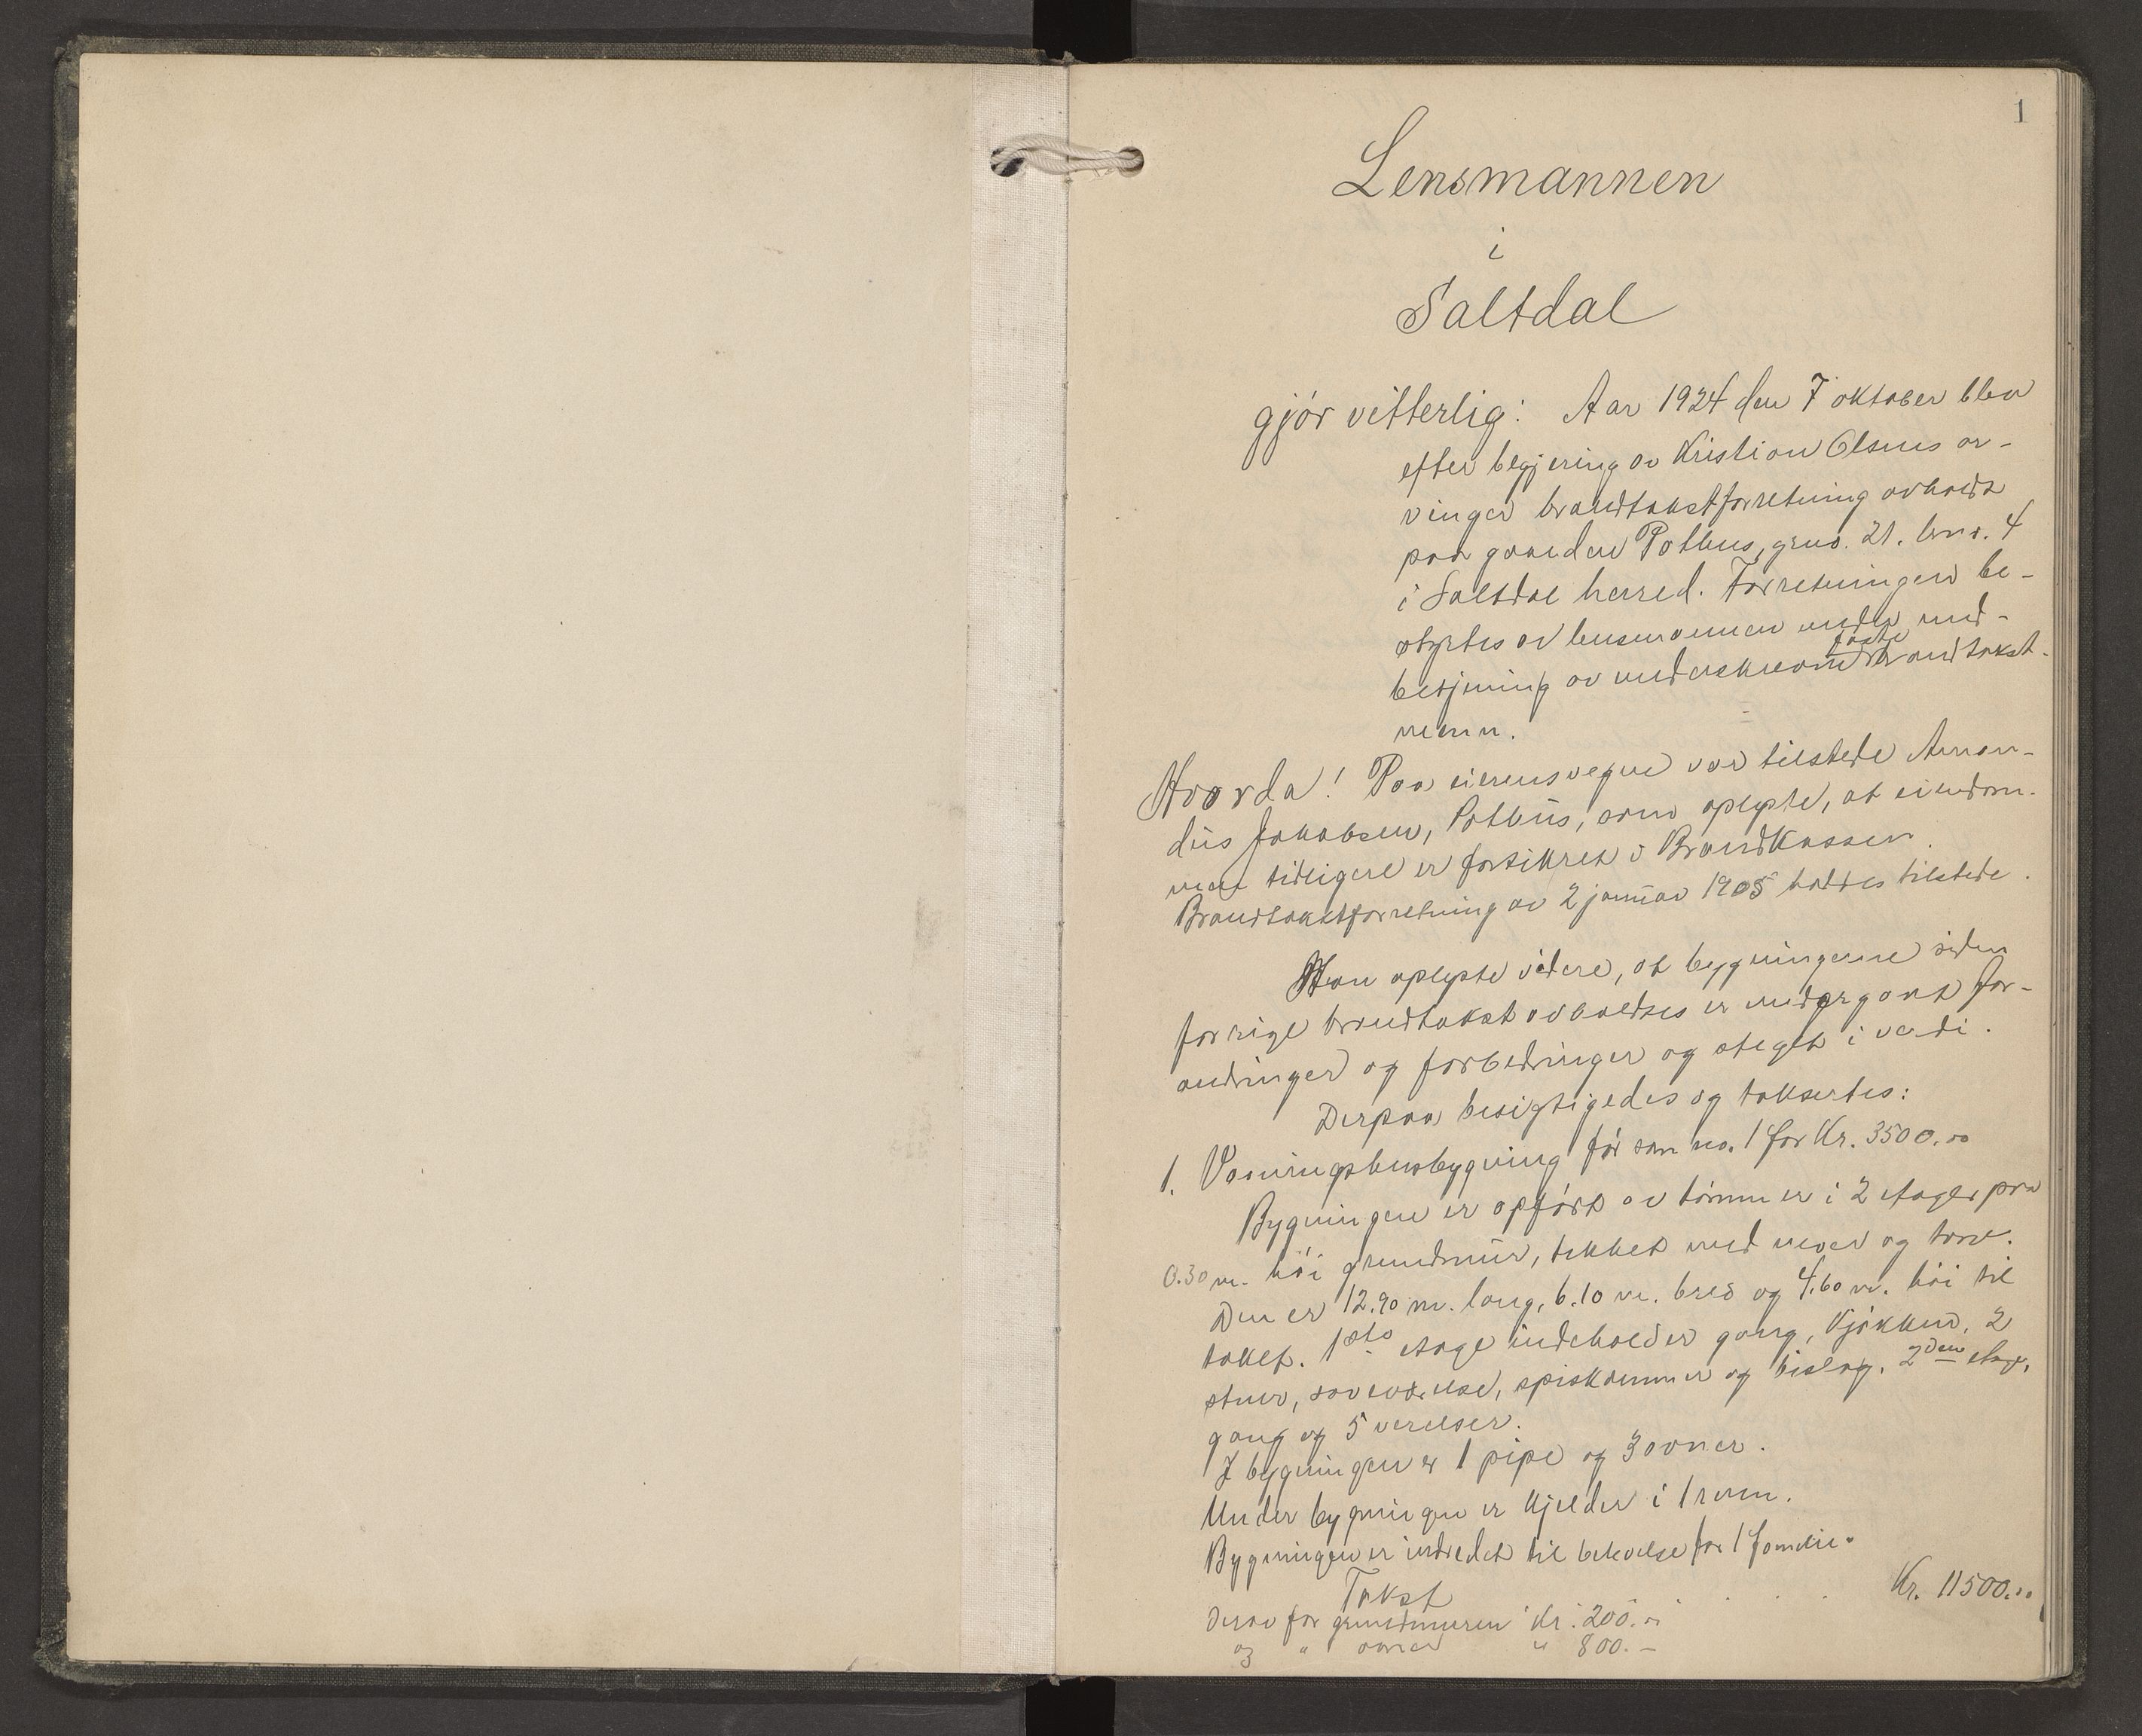 1
Lensmannen
i
Saltdal
gjör vitterlig: Aar 1924 den 7 oktober blev
efter begjering av Kristian Olsens ar-
vinger brandtakstforretning avholdt
paa gaarden Pothus, grno. 21. brno. 4
i Saltdal herred. Forretningen be-
styrtes av lensmannen under med-
faste
betjening av underskrevne brandtakst-
menn.
Hvorda! Paa eierens vegne var tilstede Aman-
dus Jakobsen, Pothus, som oplyste, at eiendom-
men tidligere er forsikret i Brandkassen.
Brandtakstforretning av 2 januar 1905 hattes tilstede.
Han oplyste videre, at bygningerne siden
forrige brandtakst avholdtes er undergaat for-
andringer og forbedringer og steget i verdi.
Derpaa besigtigedes og taksertes:
1. Vaaningshusbygning för som no. 1 for Kr. 3500.00
Bygningen er opfört av tömmer i 2 etager paa
0.30 m. höi grundmur, tekket med never og torv.
Den er 12.90 m. lang, 6.10 m. bred og 4.60 m. höi til
taket. 1ste etage indeholder gang, kjökken, 2
stuer, soveværelse, spiskammer og bislag. 2den etage,
gang og 5 verelser.
I bygningen er 1 pipe og 3 ovner.
Under bygningen er kjelder i 1 rum.
Bygningen er indredet til beboelse for 1 familie.
Takst . . . Kr. 11500.00
Derav for grundmuren Kr. 200.00
og " ovner " 800.—